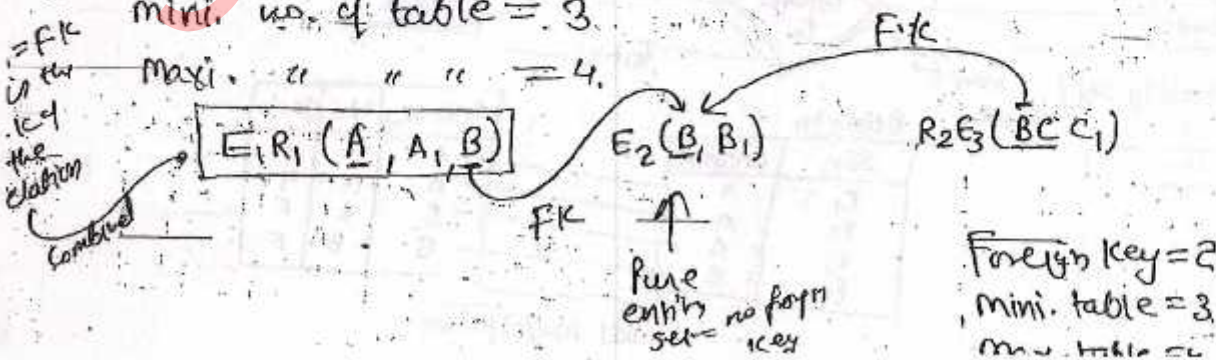 mini. no. of table = 3.
Maxi. " " " = 4.
= FK
is the
key
the
combined
E₁R₁ (A, A₁, B)
FK
E₂ (B, B₁)
F.K
R₂E₃ (BC C₁)
Pure
entity
set = no
key
Foreign Key = 2
mini. table = 3